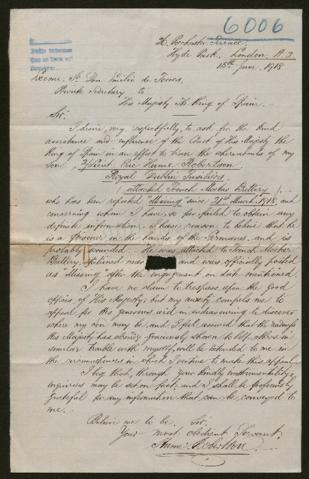 6006
Hyde Park, London, N.
15th June, 1918.
Excmo. Sr. Don Emilio de Torres,
Private Secretary to
His Majesty The King of Spain.
Sir,
I desire, very respectfully, to ask for the kind
assistance and influence of the Court of His Majesty the
King of Spain in an effort to trace the whereabouts of my
son 2/Lieut. Eric Hume Robertson
Royal Dublin Fusiliers
(attached Trench Mortar Battery)
who has been reported "Missing" since 21st March, 1918, and
concerning whom I have, so far, failed to obtain any
definite information. I have reason to believe that he
is a Prisoner in the hands of the Germans, and
probably wounded. He was attached to Trench Mortar
Battery, believed near and was officially posted
as "Missing" after the engagement on date mentioned.
I have no desire to trespass upon the good
offices of His Majesty, but my anxiety compels me to
appeal for this generous aid in endeavouring to discover
where my son may be, and I feel assured that the
His Majesty has already graciously shown to others in
similar trouble with myself, will be extended to me in
the circumstances in which I venture to make this appeal.
I beg that, through Your kindly instrumentality,
inquiries may be set on foot, and I shall be profoundly
grateful for any information that can be conveyed to
me.
Believe me to be, Sir,
Your most obedient Servant,
Hume Robertson